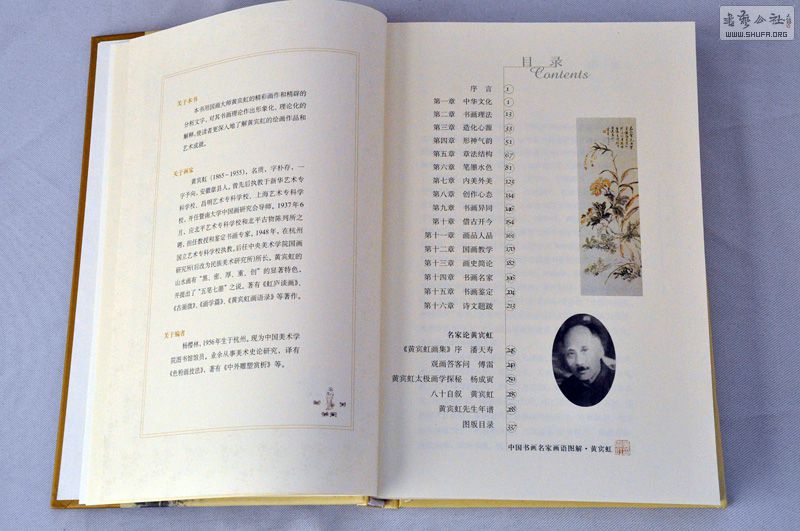 关于本书
本书用国画大师黄宾虹的精彩画作和精辟的
分析文字，对其书画理论作出形象化、理论化的
解释，使读者更深入地了解黄宾虹的绘画作品和
艺术成就。
关于画家
黄宾虹（1865-1955），名质，字朴存，一
字予向，安徽歙县人，曾先后执教于新华艺术专
科学校、昌明艺术专科学校、上海艺术专科学
校，并任暨南大学中国画研究会导师。1937年6
月，应北平艺术专科学校和北平古物陈列所之
聘，出任教授和鉴定书画专家。1948年，在杭州
国立艺术专科学校执教。后任中央美术学院国画
研究所(后改为民族美术研究所)所长。黄宾虹的
山水画有“黑、密、厚、重、创”的显著特色，
并提出了“五笔七墨”之说。著有《虹庐谈画》、
《古画微》、《画学篇》、《黄宾虹画语录》等著作。
关于编者
杨樱林，1956年生于杭州。现为中国美术学
院图书馆馆员，业余从事美术史论研究，译有
《色粉画技法》、著有《中外雕塑赏析》等。
目 录
Contents
序 言 1
第一章 中华文化 1
第二章 书画理法 13
第三章 造化心源 33
第四章 形神气韵 51
第五章 章法结构 67
第六章 笔墨水色 81
第七章 内美外美 123
第八章 创作心态
第九章 书画异同
第十章 借古开今
第十一章 画品人品
第十二章 国画教学
第十三章 画史简论 182
第十四章 书画名家
第十五章 书画鉴定 204
第十六章 诗文题跋 213
名家论黄宾虹
《黄宾虹画集》序 潘天寿
观画答客问 傅雷
黄宾虹太极画学探秘 杨成寅
八十自叙 黄宾虹
黄宾虹先生年谱
图版目录 337
中国书画名家画语图解·黄宾虹
书艺公社
WWW.SHUFA.ORG